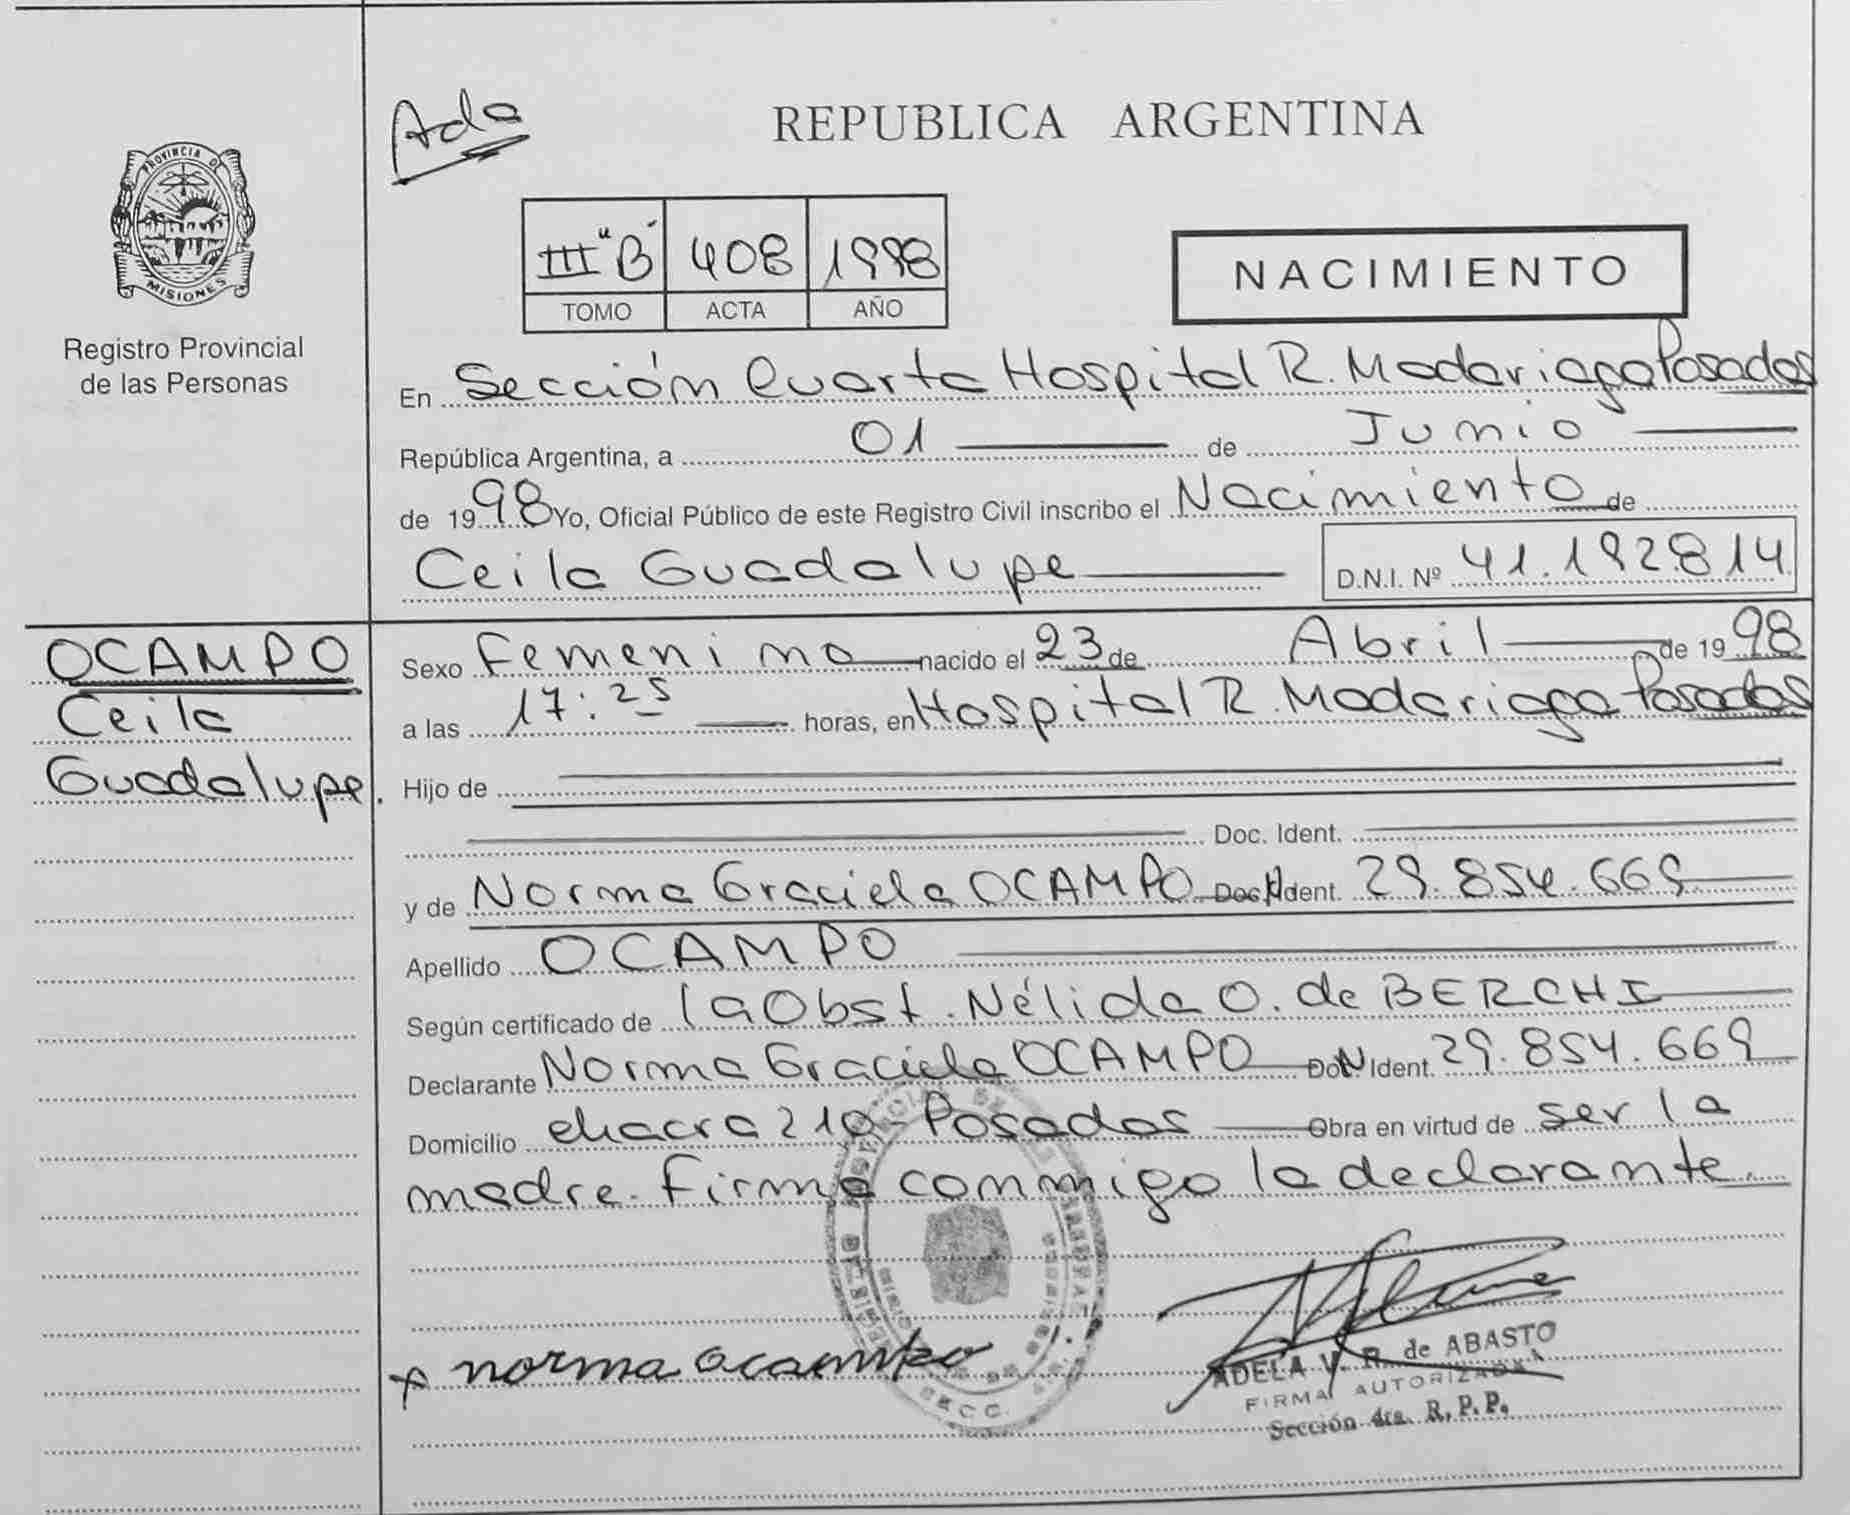 Ada
REPUBLICA ARGENTINA
PROVINCIA DE
MISIONES
Registro Provincial
de las Personas
III "B" 408 1998
TOMO ACTA AÑO
NACIMIENTO
En Sección Cuarta Hospital R. Madariaga Posadas
República Argentina, a 01 de Junio
de 1998 Yo, Oficial Público de este Registro Civil inscribo el Nacimiento de
Ceila Guadalupe D.N.I. Nº 41.192814
OCAMPO
Ceila
Guadalupe.
Sexo Femenino nacido el 23 de Abril de 1998
a las 17:25 horas, en Hospital R. Madariaga Posadas
Hijo de
Doc. Ident.
y de Norma Graciela OCAMPO Doc. Ident. 29.854.669
Apellido OCAMPO
Según certificado de la Obst. Nélida O. de BERCHI
Declarante Norma Graciela OCAMPO Doc. Ident. 29.854.669
Domicilio chacra 210 Posadas Obra en virtud de ser la
madre. Firma conmigo la declarante.
norma ocampo
ADELA V. R. de ABASTO
FIRMA AUTORIZADA
Sección 4ta. R. P. P.